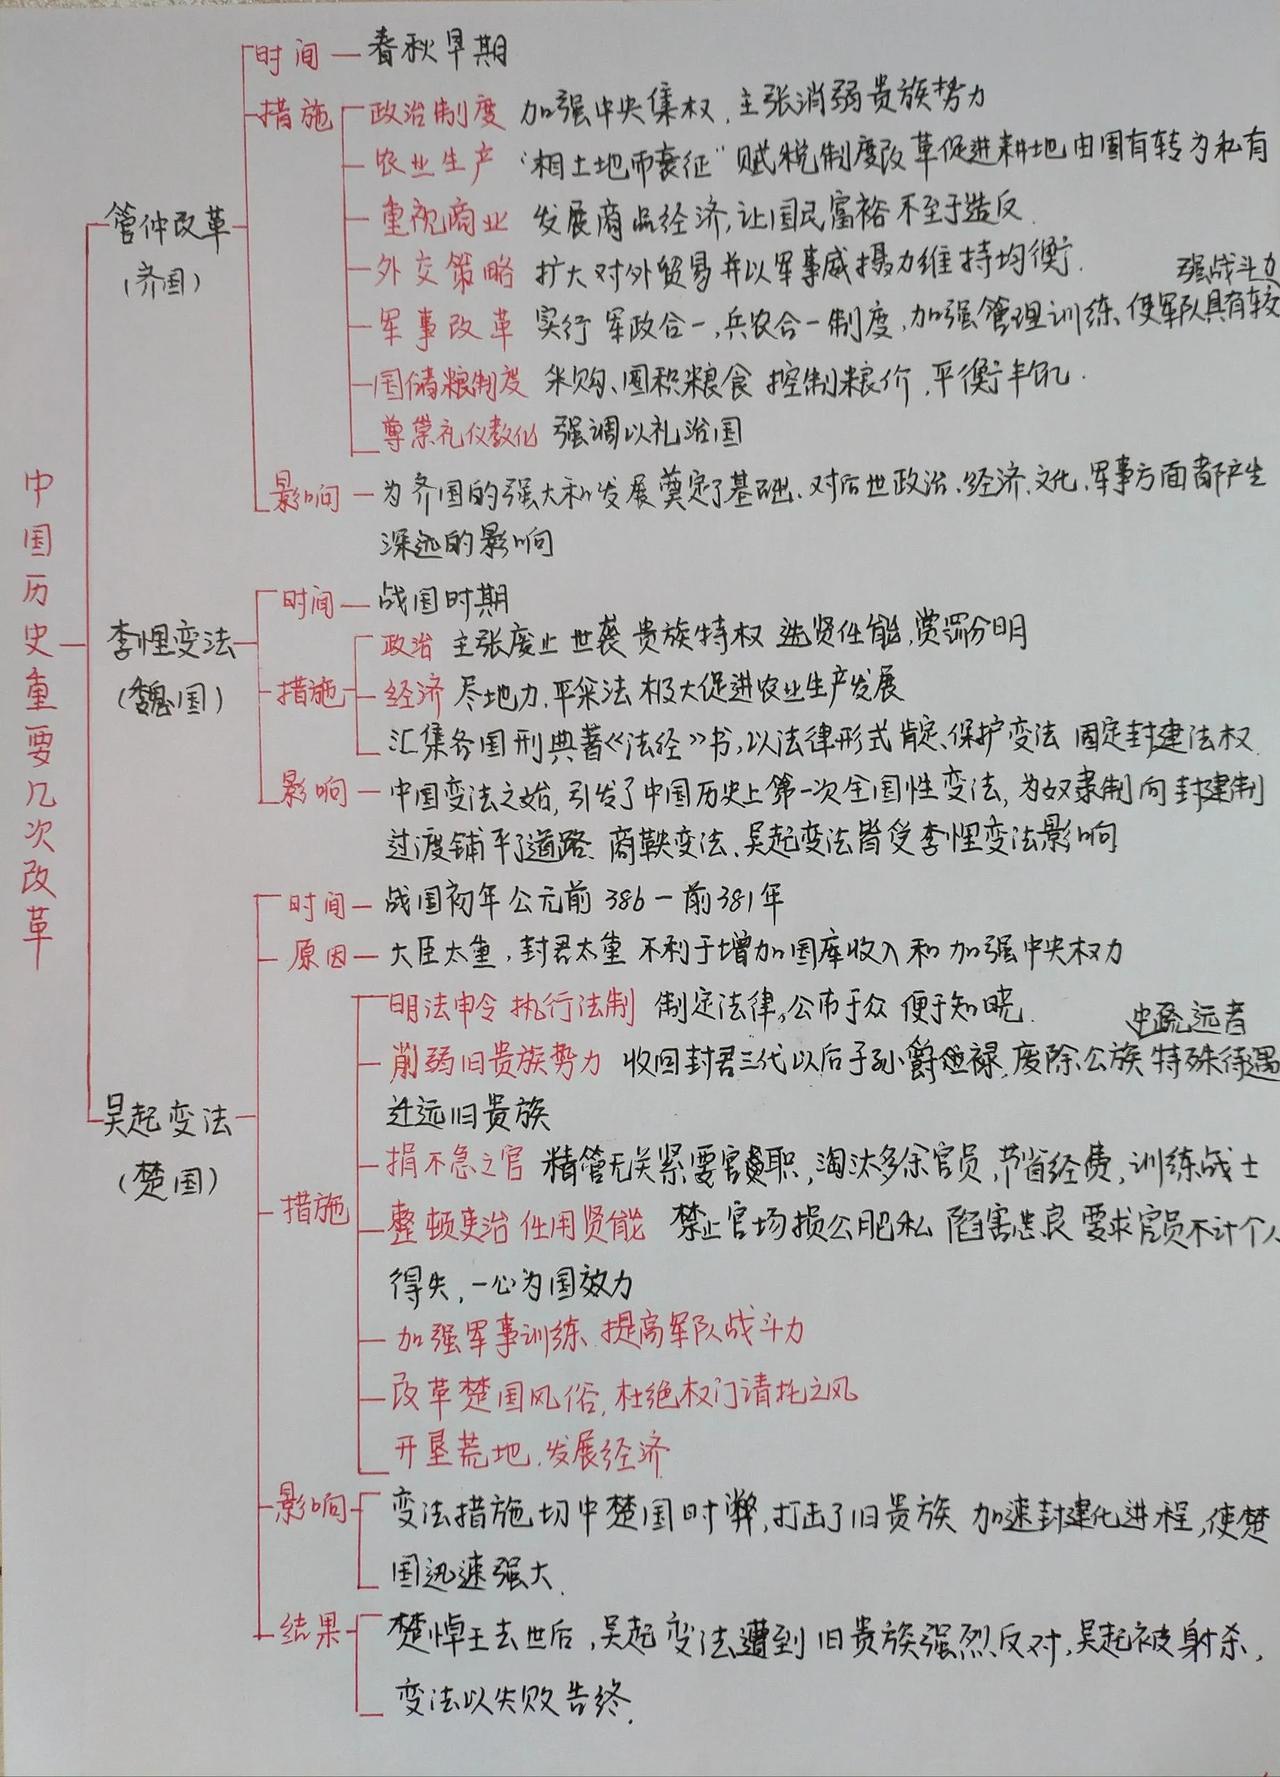 中国历史重要几次改革
管仲改革
(齐国)
时间 — 春秋早期
措施
政治制度 加强中央集权,主张消弱贵族势力
农业生产 "相土地而衰征"赋税制度改革促进耕地由国有转为私有
重视商业 发展商品经济,让国民富裕不至于造反.
外交策略 扩大对外贸易并以军事威摄力维持均衡.
强战斗力
军事改革 实行军政合一,兵农合一制度,加强管理训练、使军队具有较
国储粮制度 采购、囤积粮食 控制粮价,平衡丰饥.
尊崇礼仪教化 强调以礼治国
影响 — 为齐国的强大和发展奠定了基础、对后世政治、经济、文化、军事方面都产生
深远的影响
李悝变法
(魏国)
时间 — 战国时期
措施
政治 主张废止世袭贵族特权 选贤任能,赏罚分明
经济 尽地力,平籴法极大促进农业生产发展
汇集各国刑典著《法经》书,以法律形式肯定、保护变法 固定封建法权
影响 — 中国变法之始,引发了中国历史上第一次全国性变法,为奴隶制向封建制
过渡铺平了道路、商鞅变法、吴起变法皆受李悝变法影响
吴起变法
(楚国)
时间 — 战国初年公元前386-前381年
原因 — 大臣太重,封君太重 不利于增加国库收入和加强中央权力
措施
明法申令 执行法制 制定法律,公布于众 便于知晓.
中疏远者
削弱旧贵族势力 收回封君三代以后子孙爵禄,废除公族特殊待遇
迁远旧贵族
捐不急之官 精管无关紧要官职,淘汰多余官员,节省经费,训练战士
整顿吏治 任用贤能 禁止官场损公肥私 陷害忠良 要求官员不计个人
得失,一心为国效力
加强军事训练、提高军队战斗力
改革楚国风俗,杜绝权门请托之风
开垦荒地,发展经济
影响
变法措施切中楚国时弊,打击了旧贵族 加速封建化进程,使楚
国迅速强大.
结果
楚悼王去世后,吴起变法遭到旧贵族强烈反对,吴起被射杀,
变法以失败告终.